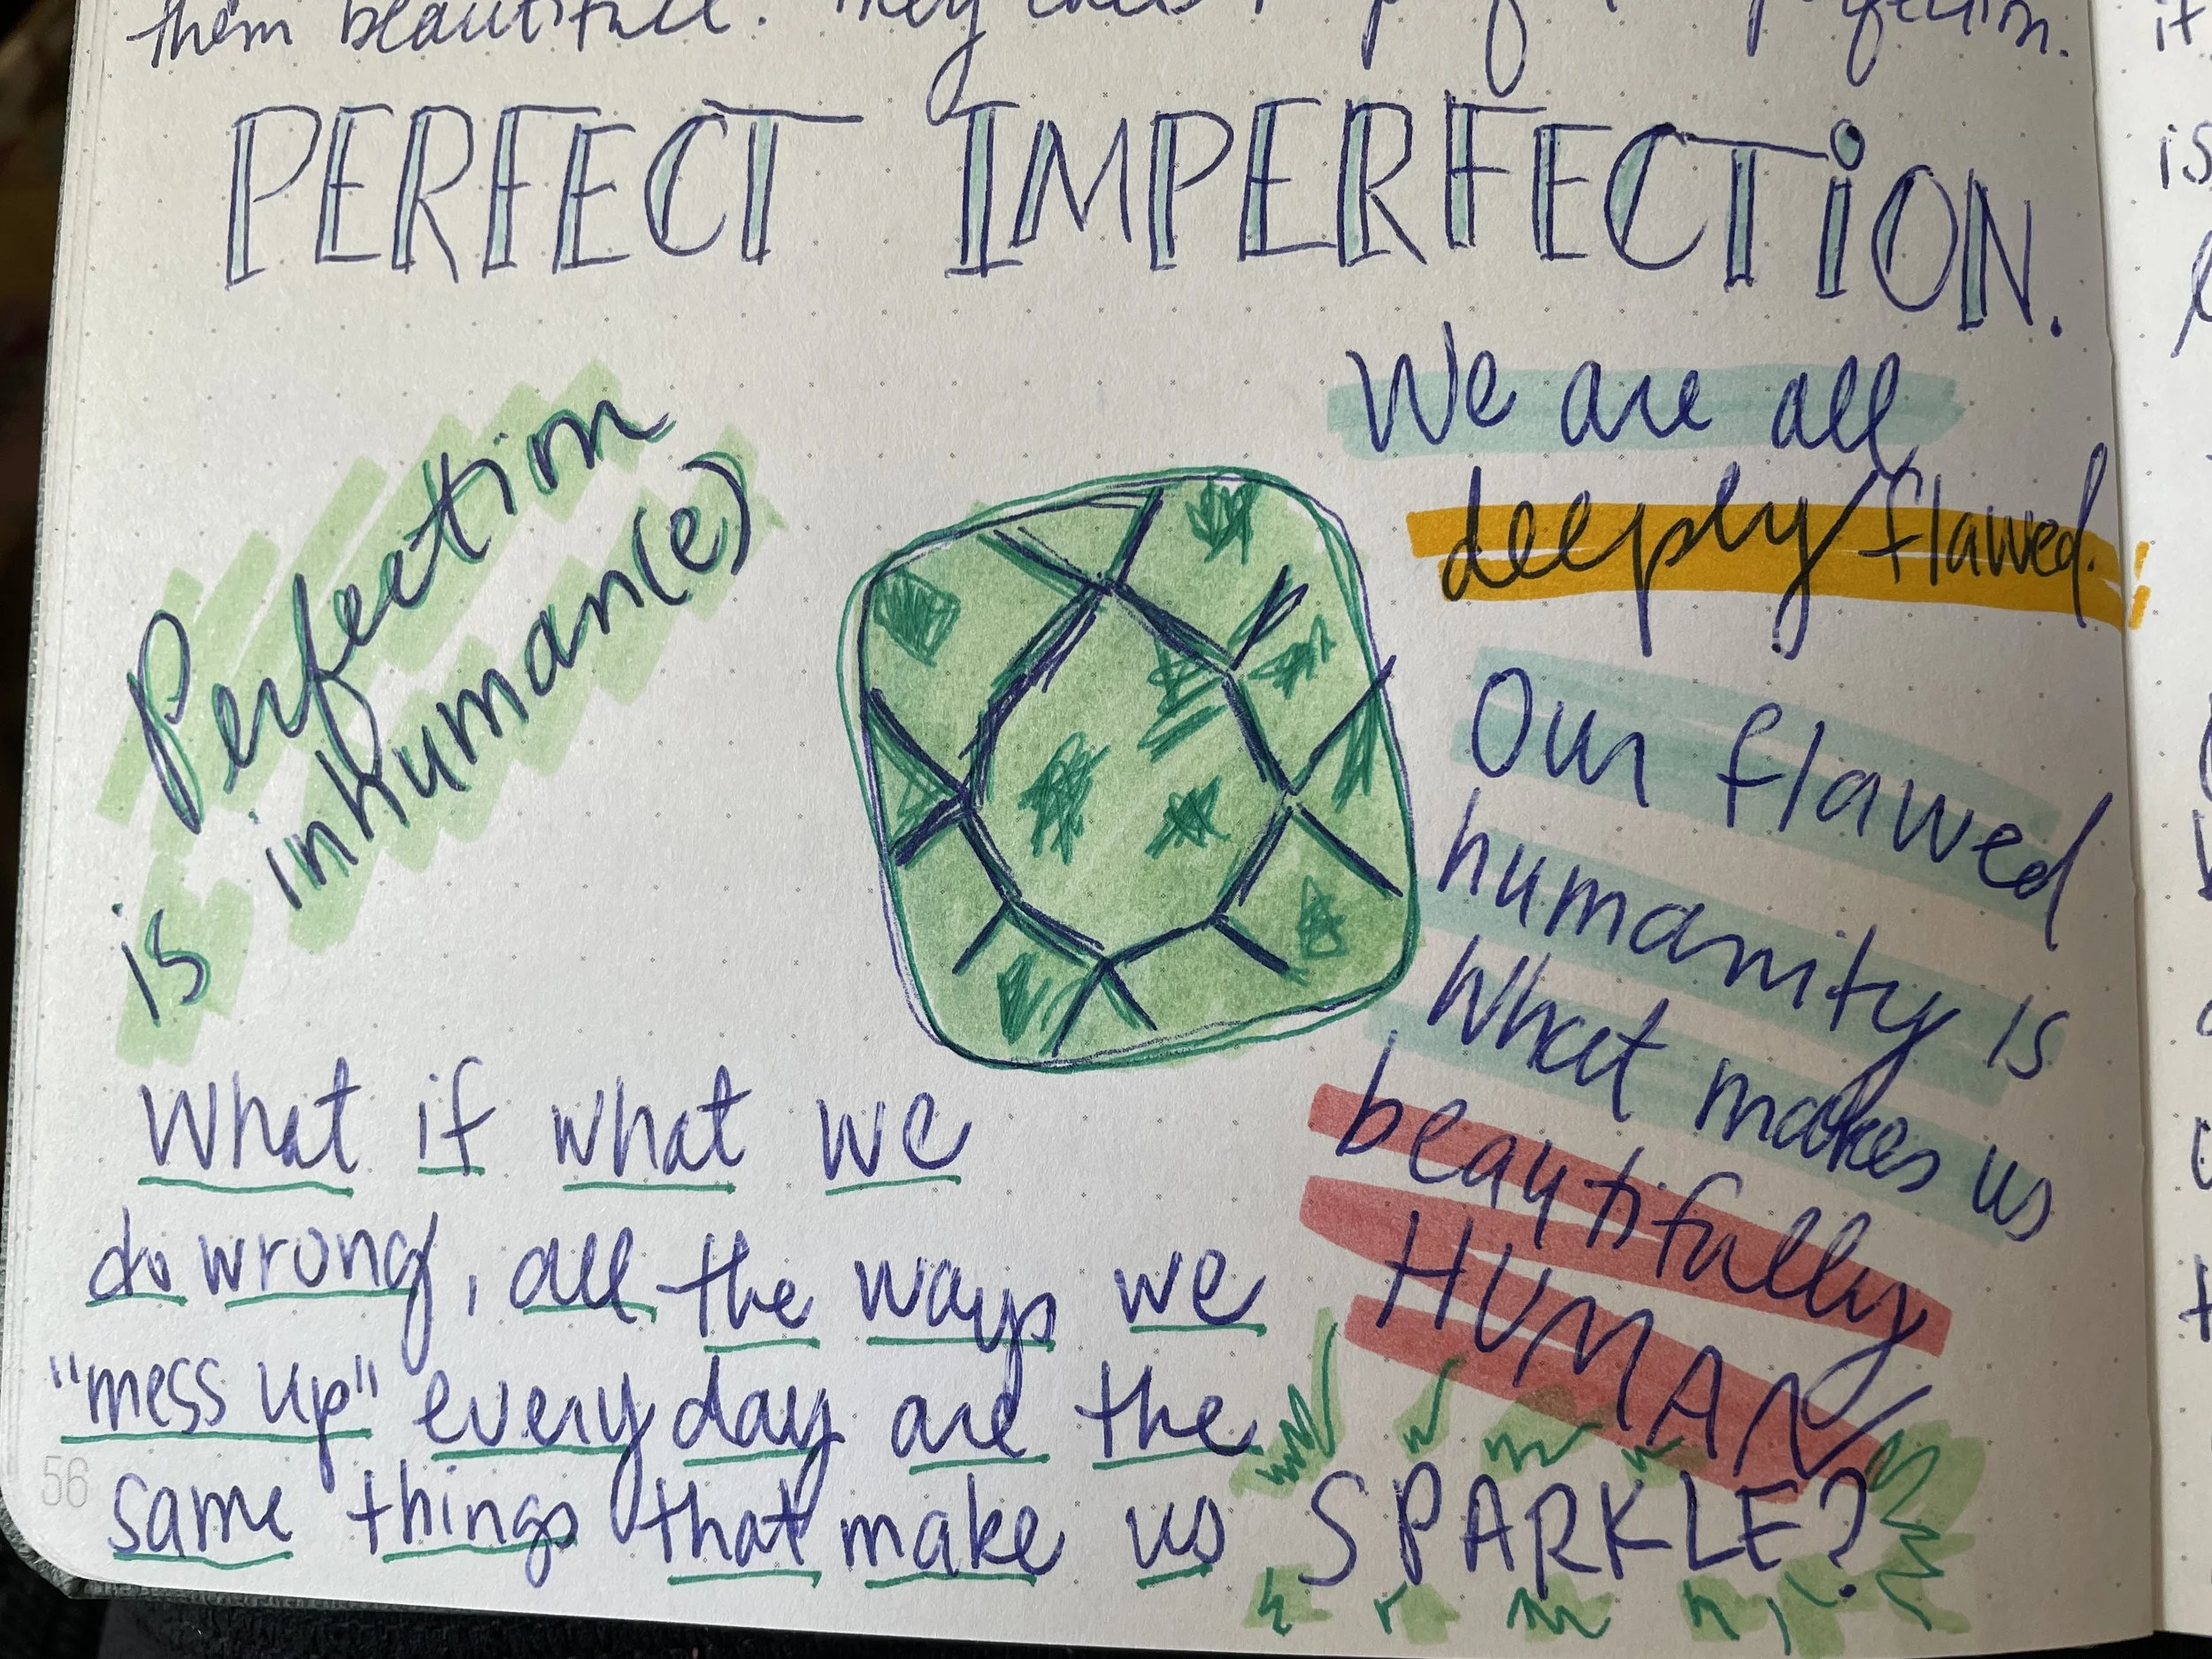 them beautiful. They
perfection.
PERFECT IMPERFECTiON.
We are all
deeply flawed.
Perfection
is inhuman(e)
Our flawed
humanity is
what makes us
beautifully
HUMAN
What if what we
do wrong, all the ways we
"mess up" every day are the
same things that make us SPARKLE?
56